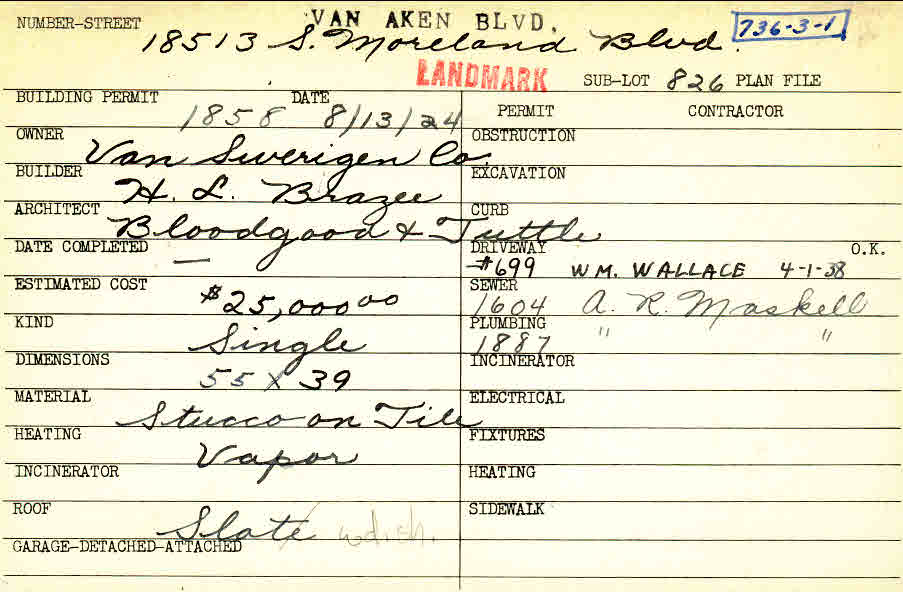 NUMBER-STREET VAN AKEN BLVD. 736-3-1
18513 S. Moreland Blvd.
LANDMARK SUB-LOT 826 PLAN FILE
BUILDING PERMIT DATE PERMIT CONTRACTOR
1858 8/13/24
OWNER Van Swerigen Co. OBSTRUCTION
BUILDER H. L. Brazee EXCAVATION
ARCHITECT Bloodgood & Tuttle CURB
DATE COMPLETED — DRIVEWAY O.K.
#699 WM. WALLACE 4-1-38
ESTIMATED COST $25,000.00 SEWER
1604 A. R. Maskell
KIND Single PLUMBING
1887 " "
DIMENSIONS 55 X 39 INCINERATOR
MATERIAL Stucco on Tile ELECTRICAL
HEATING Vapor FIXTURES
INCINERATOR HEATING
ROOF Slate wd. sh. SIDEWALK
GARAGE-DETACHED-ATTACHED